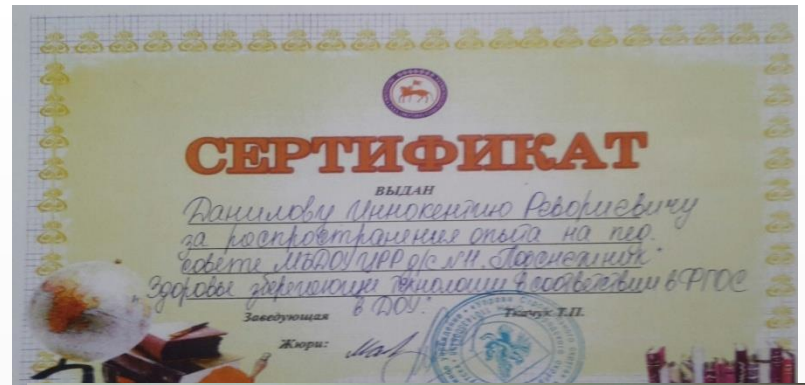 СЕРТИФИКАТ
ВЫДАН
Данилову Иннокентию Револриевичу
за распространения опыта на пед.
совете МБДОУ ЦРР д/с №11 „Подснежник"
"Здоровье зберегающие технологии в соответствии в ФГОС
в ДОУ."
Заведующая Ткачук Т.П.
Жюри: